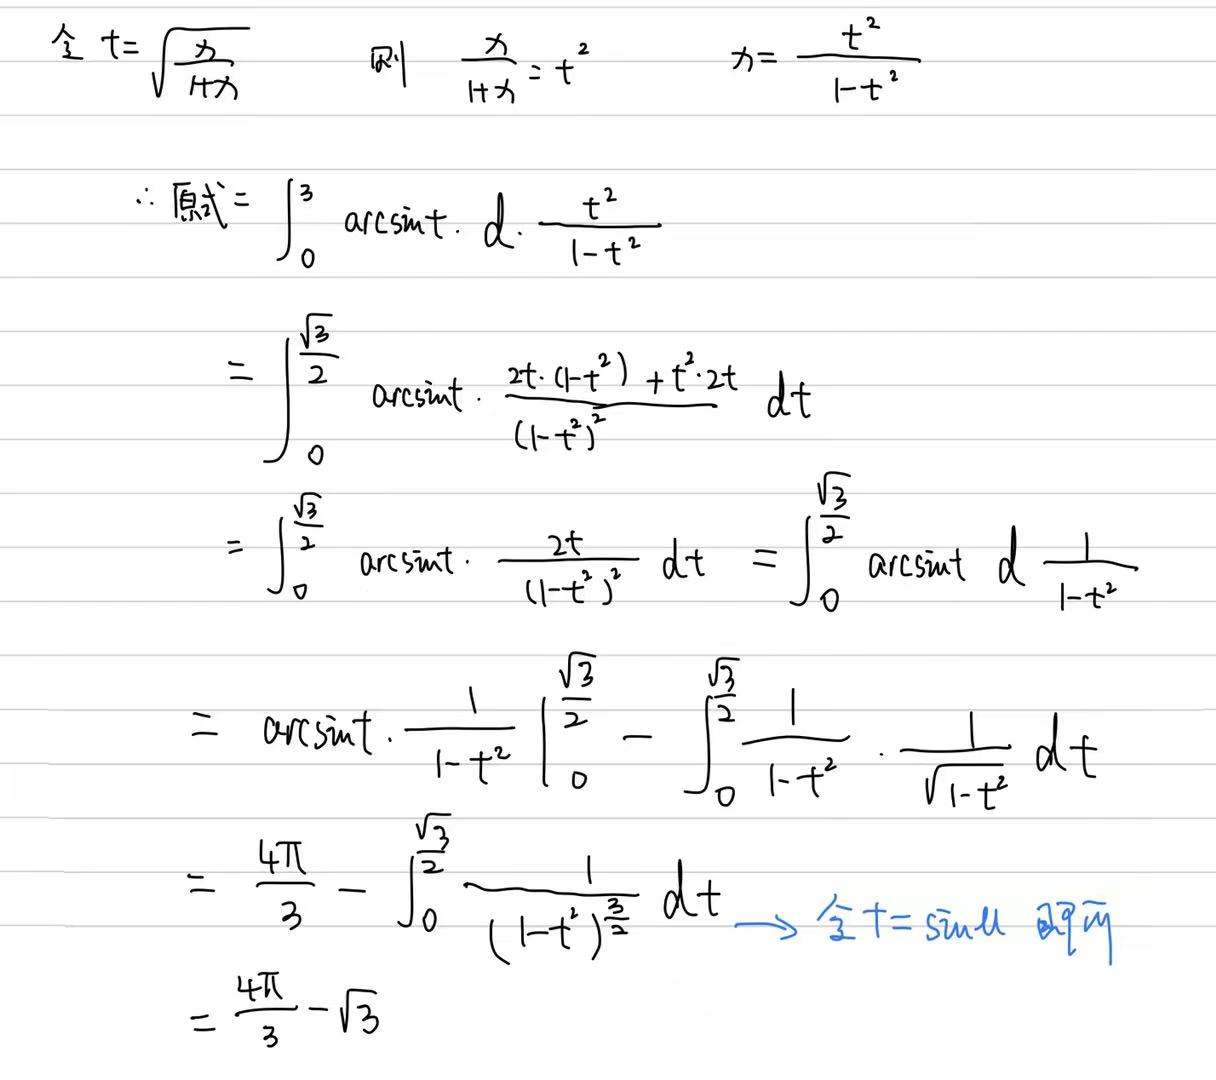 令 t=√(x/(1+x)) 则 x/(1+x)=t² x=t²/(1-t²)
∴原式=∫₀³ arcsint·d·t²/(1-t²)
=∫₀^(√3/2) arcsint·(2t·(1-t²)+t²·2t)/(1-t²)² dt
=∫₀^(√3/2) arcsint·2t/(1-t²)² dt =∫₀^(√3/2) arcsint d 1/(1-t²)
= arcsint·1/(1-t²)|₀^(√3/2) - ∫₀^(√3/2) 1/(1-t²)·1/√(1-t²) dt
= 4π/3 - ∫₀^(√3/2) 1/(1-t²)^(3/2) dt → 令 t=sinu 即可
= 4π/3 - √3